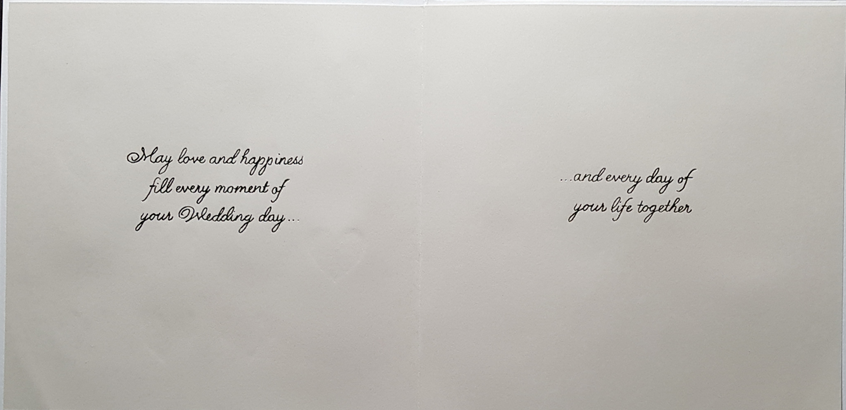 May love and happiness
fill every moment of
your Wedding day...
...and every day of
your life together